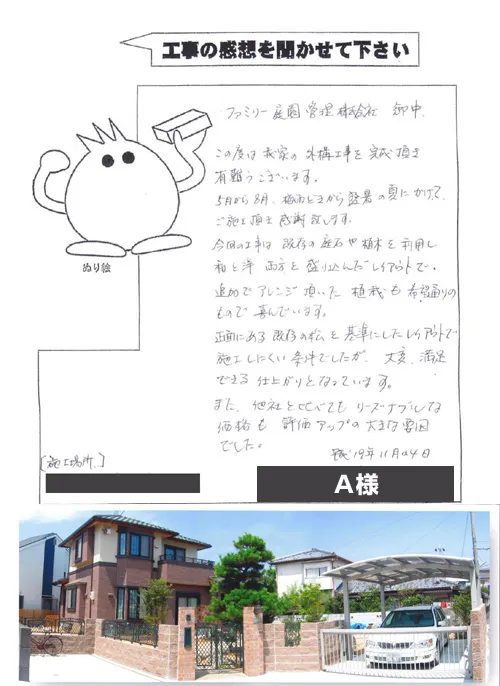 工事の感想を聞かせて下さい
ファミリー庭園管理株式会社 御中.
この度は我家の外構工事を完成頂き
有難うございます。
5月から8月、梅雨どきから盛暑の夏にかけて、
ご施工頂き感謝致します。
今回の工事は既存の庭石や植木を利用し
和と洋 両方を盛り込んだレイアウトで、
追加でアレンジ頂いた植栽も希望通りの
もので喜んでいます。
正面にある既存の松を基準にしたレイアウトで
施工しにくい条件でしたが、大変、満足
できる仕上がりとなっています。
また、他社と比べてもリーズナブルな
価格も評価アップの大きな要因
でした。
平成19年11月24日
ぬり絵
[施工場所.]
A様